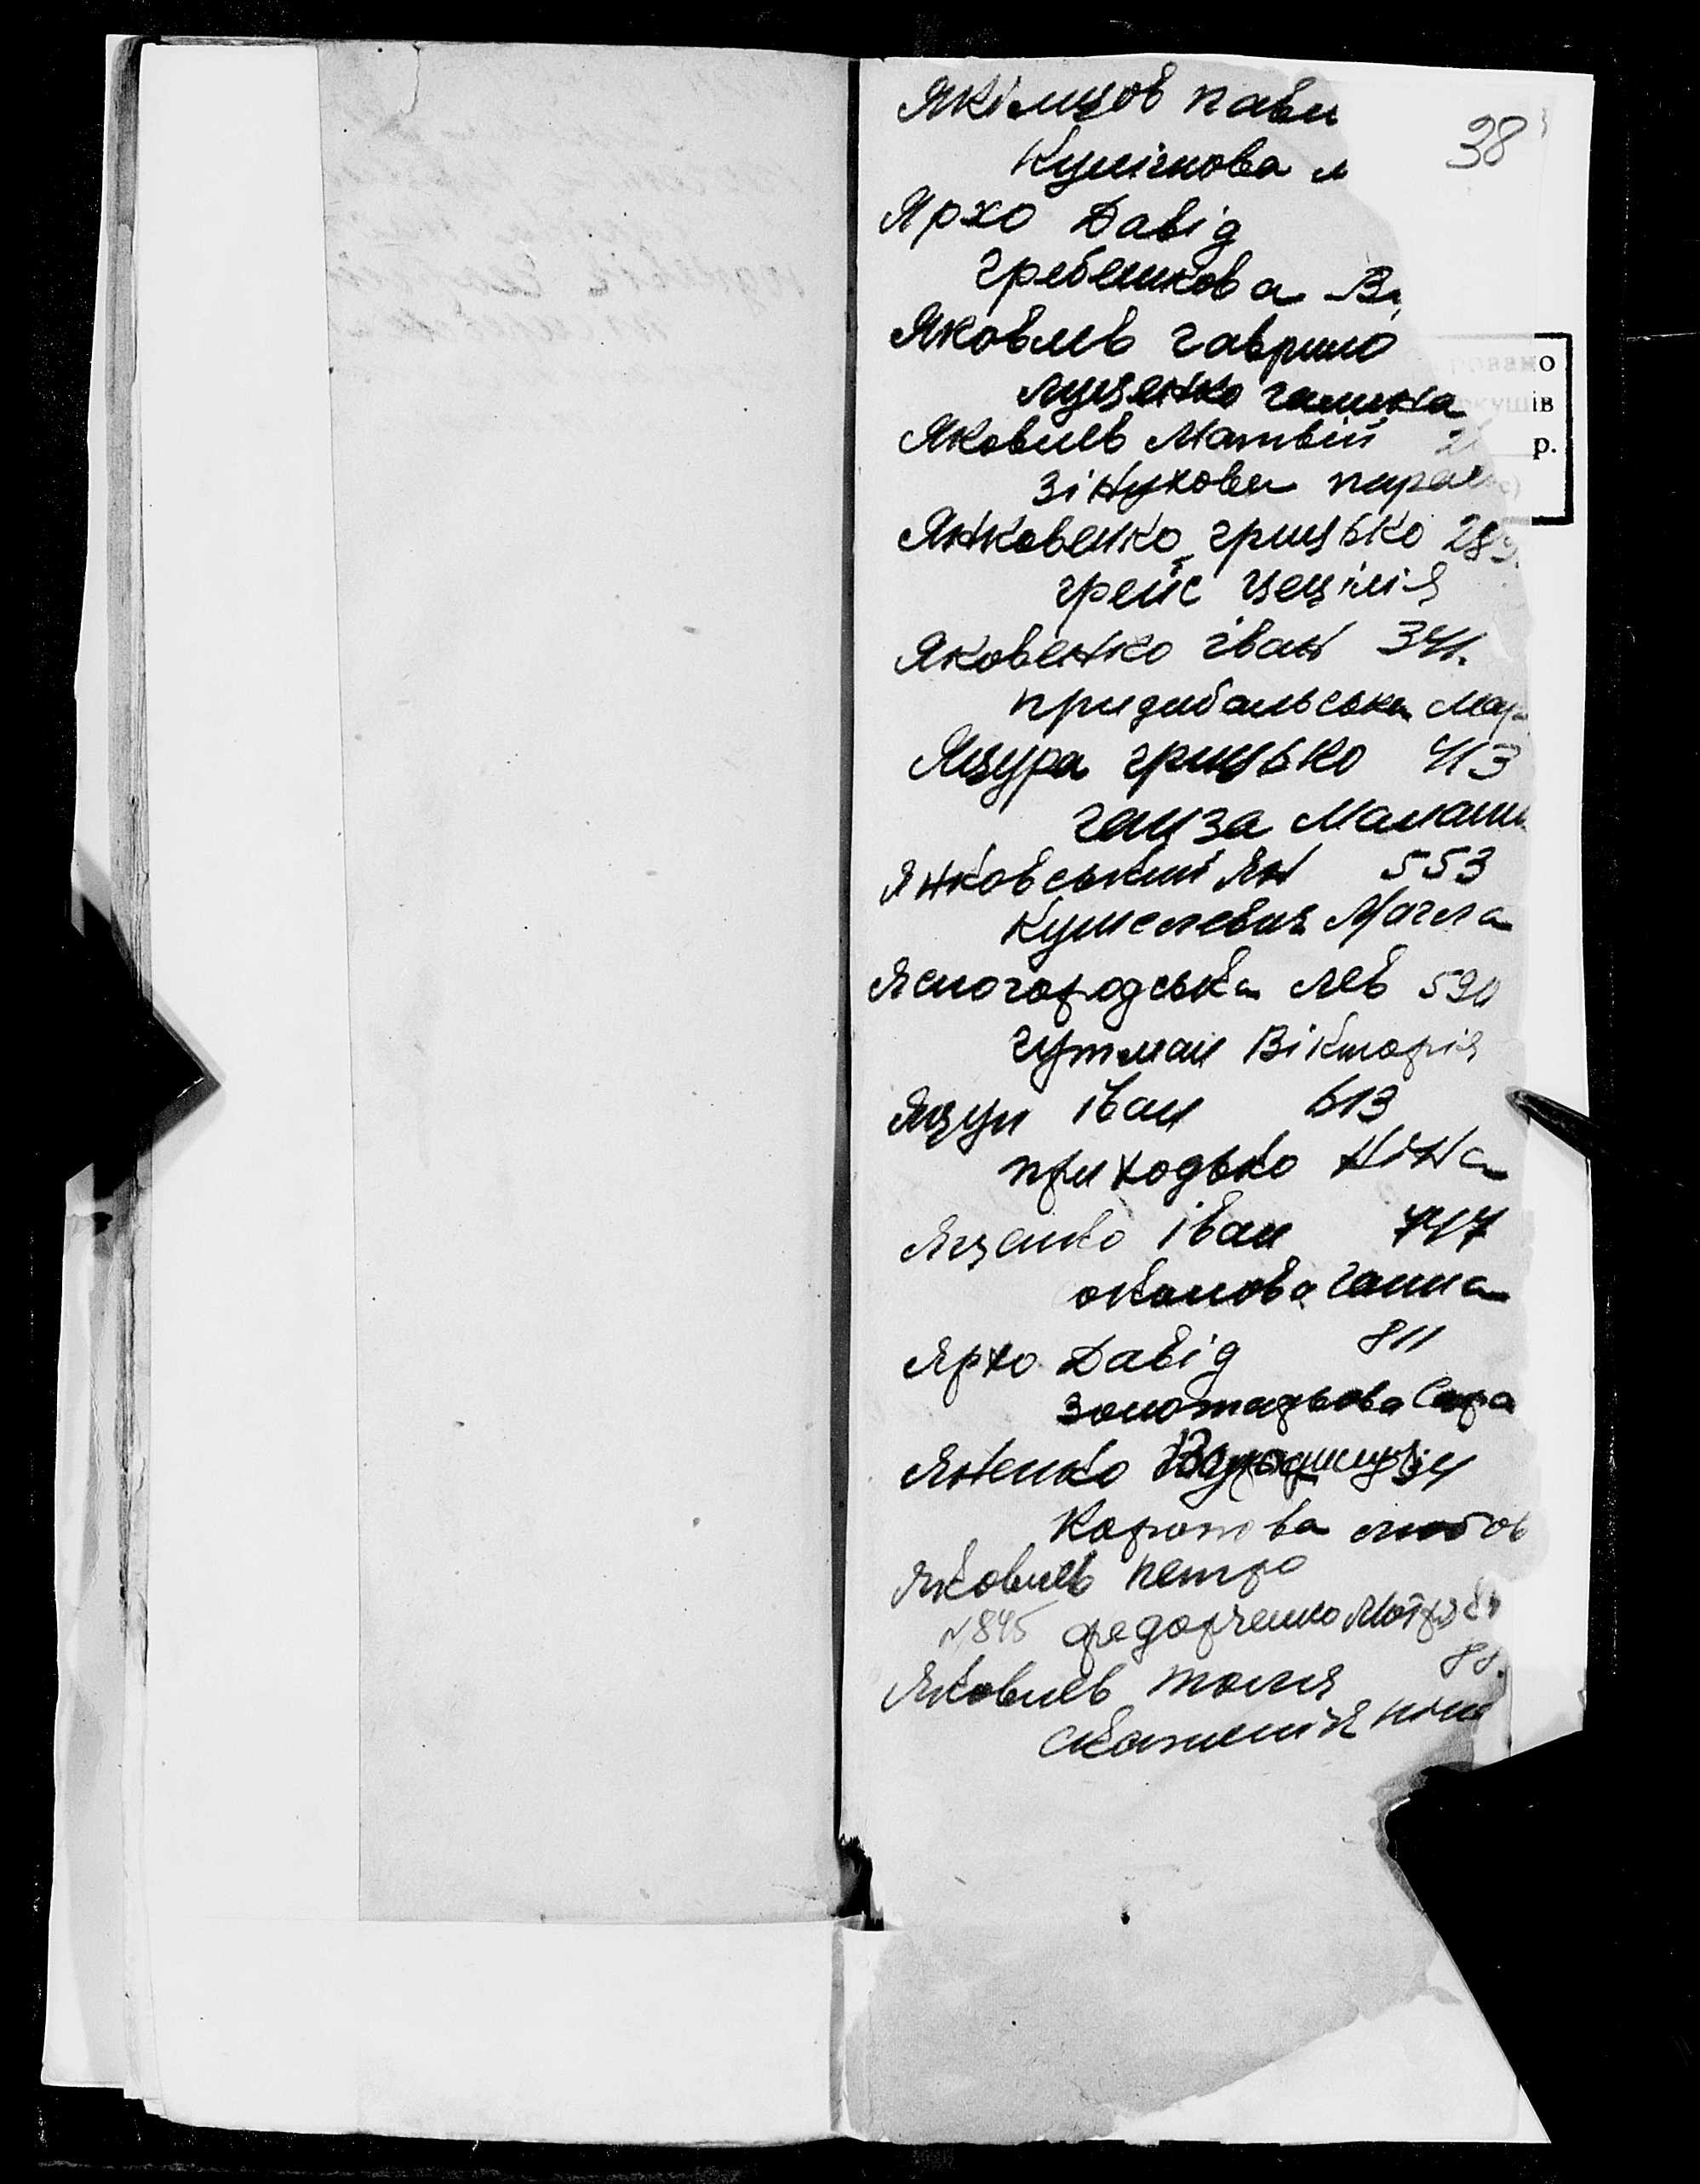 38
Якімцов Павл
Кулічкова
Ярхо Давід
Гребенікова Ві
Яковлєв Гаврило
Луценко Галина
Яковлєв Матвій
Зінукова Парас
Янковенко Грицько 283
Грейс Цецілія
Яковенко Іван 341.
Придибальська Мар
Яцура Грицько 413
Ганза Малани
Янковський Ян 553
Кушелевич Магла
Ясногородська Лев 590
Гутман Вікторія
Яцун Іван 613
Приходько Ніна
Яценко Іван 747
Оканова Ганна
Ярхо Давід 811
Золотарьова Сара
Яненко
Любов
Яковлєв Петро
N 845 Федорченко Мотря
Яковлєв Толя
о
ів
р.